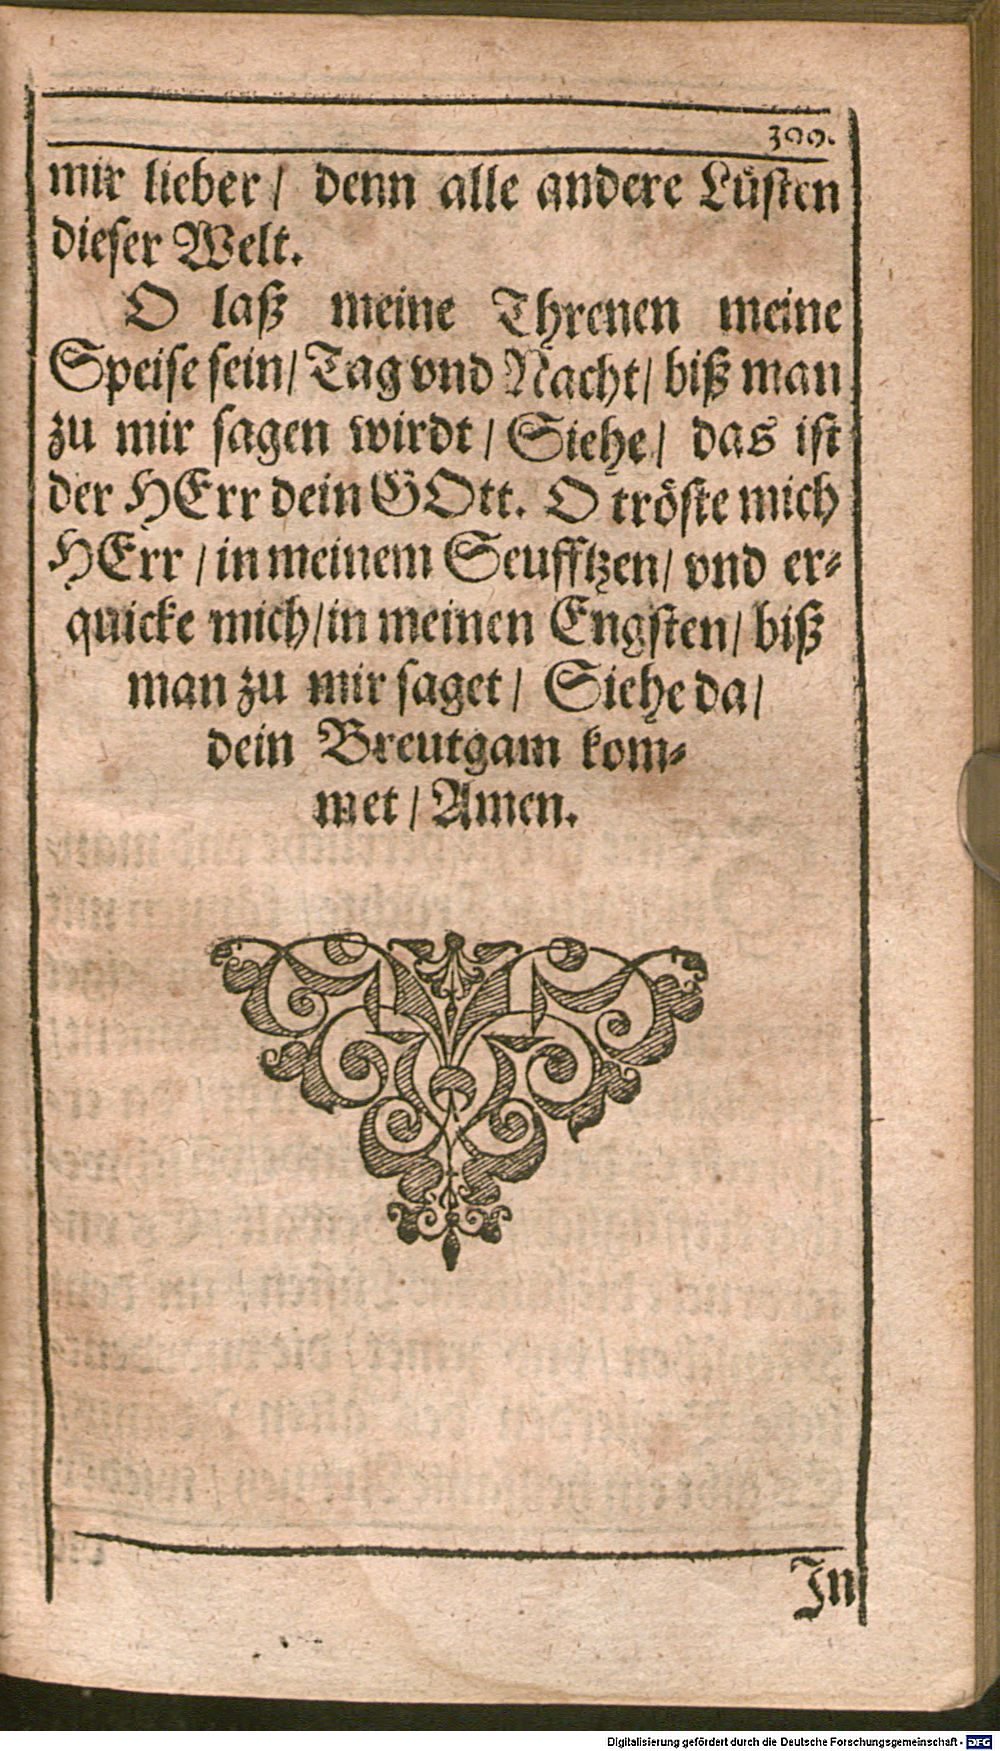 300.
mir lieber / denn alle andere Lüsten
dieser Welt.
O laß meine Threnen meine
Speise sein / Tag vnd Nacht / biß man
zu mir sagen wirdt / Siehe / das ist
der HErr dein GOtt. O tröste mich
HErr / in meinem Seufftzen / vnd er-
quicke mich / in meinen Engsten / biß
man zu mir saget / Siehe da /
dein Breutgam kom-
met / Amen.
In
Digitalisierung gefördert durch die Deutsche Forschungsgemeinschaft - DFG